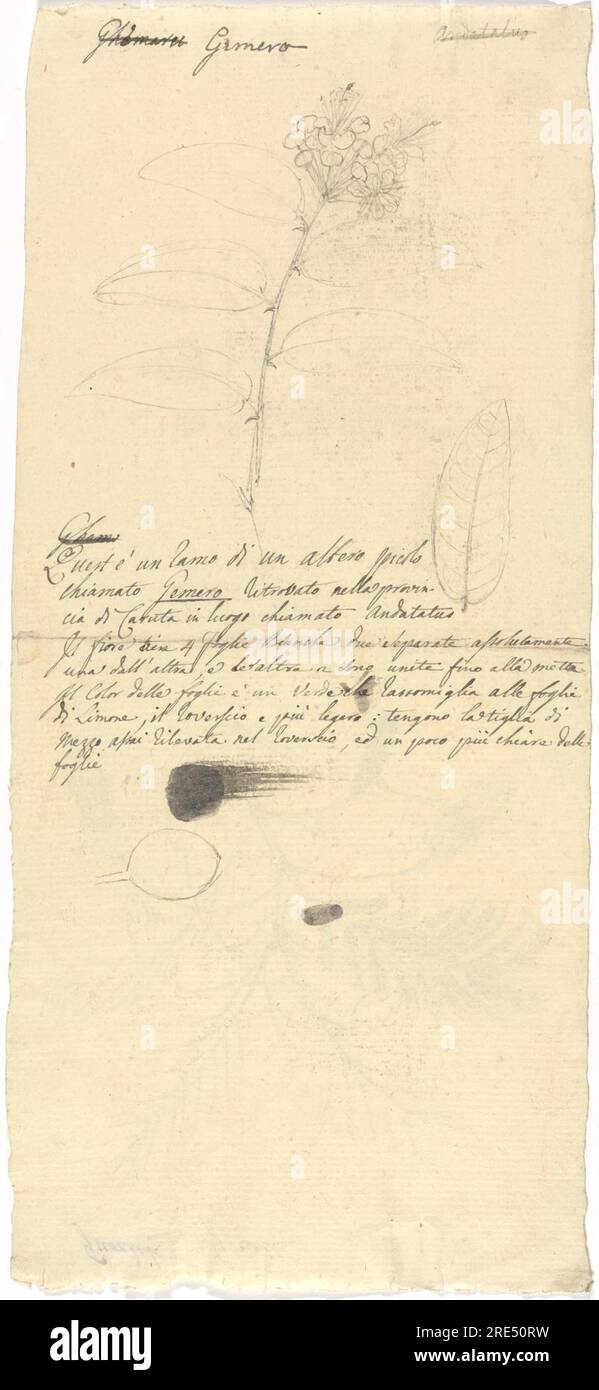 Ghimarei Gemero
Andatatus
Ghem:
Quest é un ramo di un albero picolo
chiamato Gemero ritrovato nella provin-
cia di Caruta in luogo chiamato Andatatus
Il fiore tiene 4 foglie due separate assolutamente
una dall'altra e le altre 2 sono unite fino alla metta
Il Color delle foglie é un verde che rassomiglia alle foglie
di Limone, il roverscio e piú legero: tengono la stiglia di
mezzo assai rilevata nel roverscio, ed un poco piú chiare delle
foglie
alamy
alamy
a
a
a
Image ID: 2RE50RW
www.alamy.com